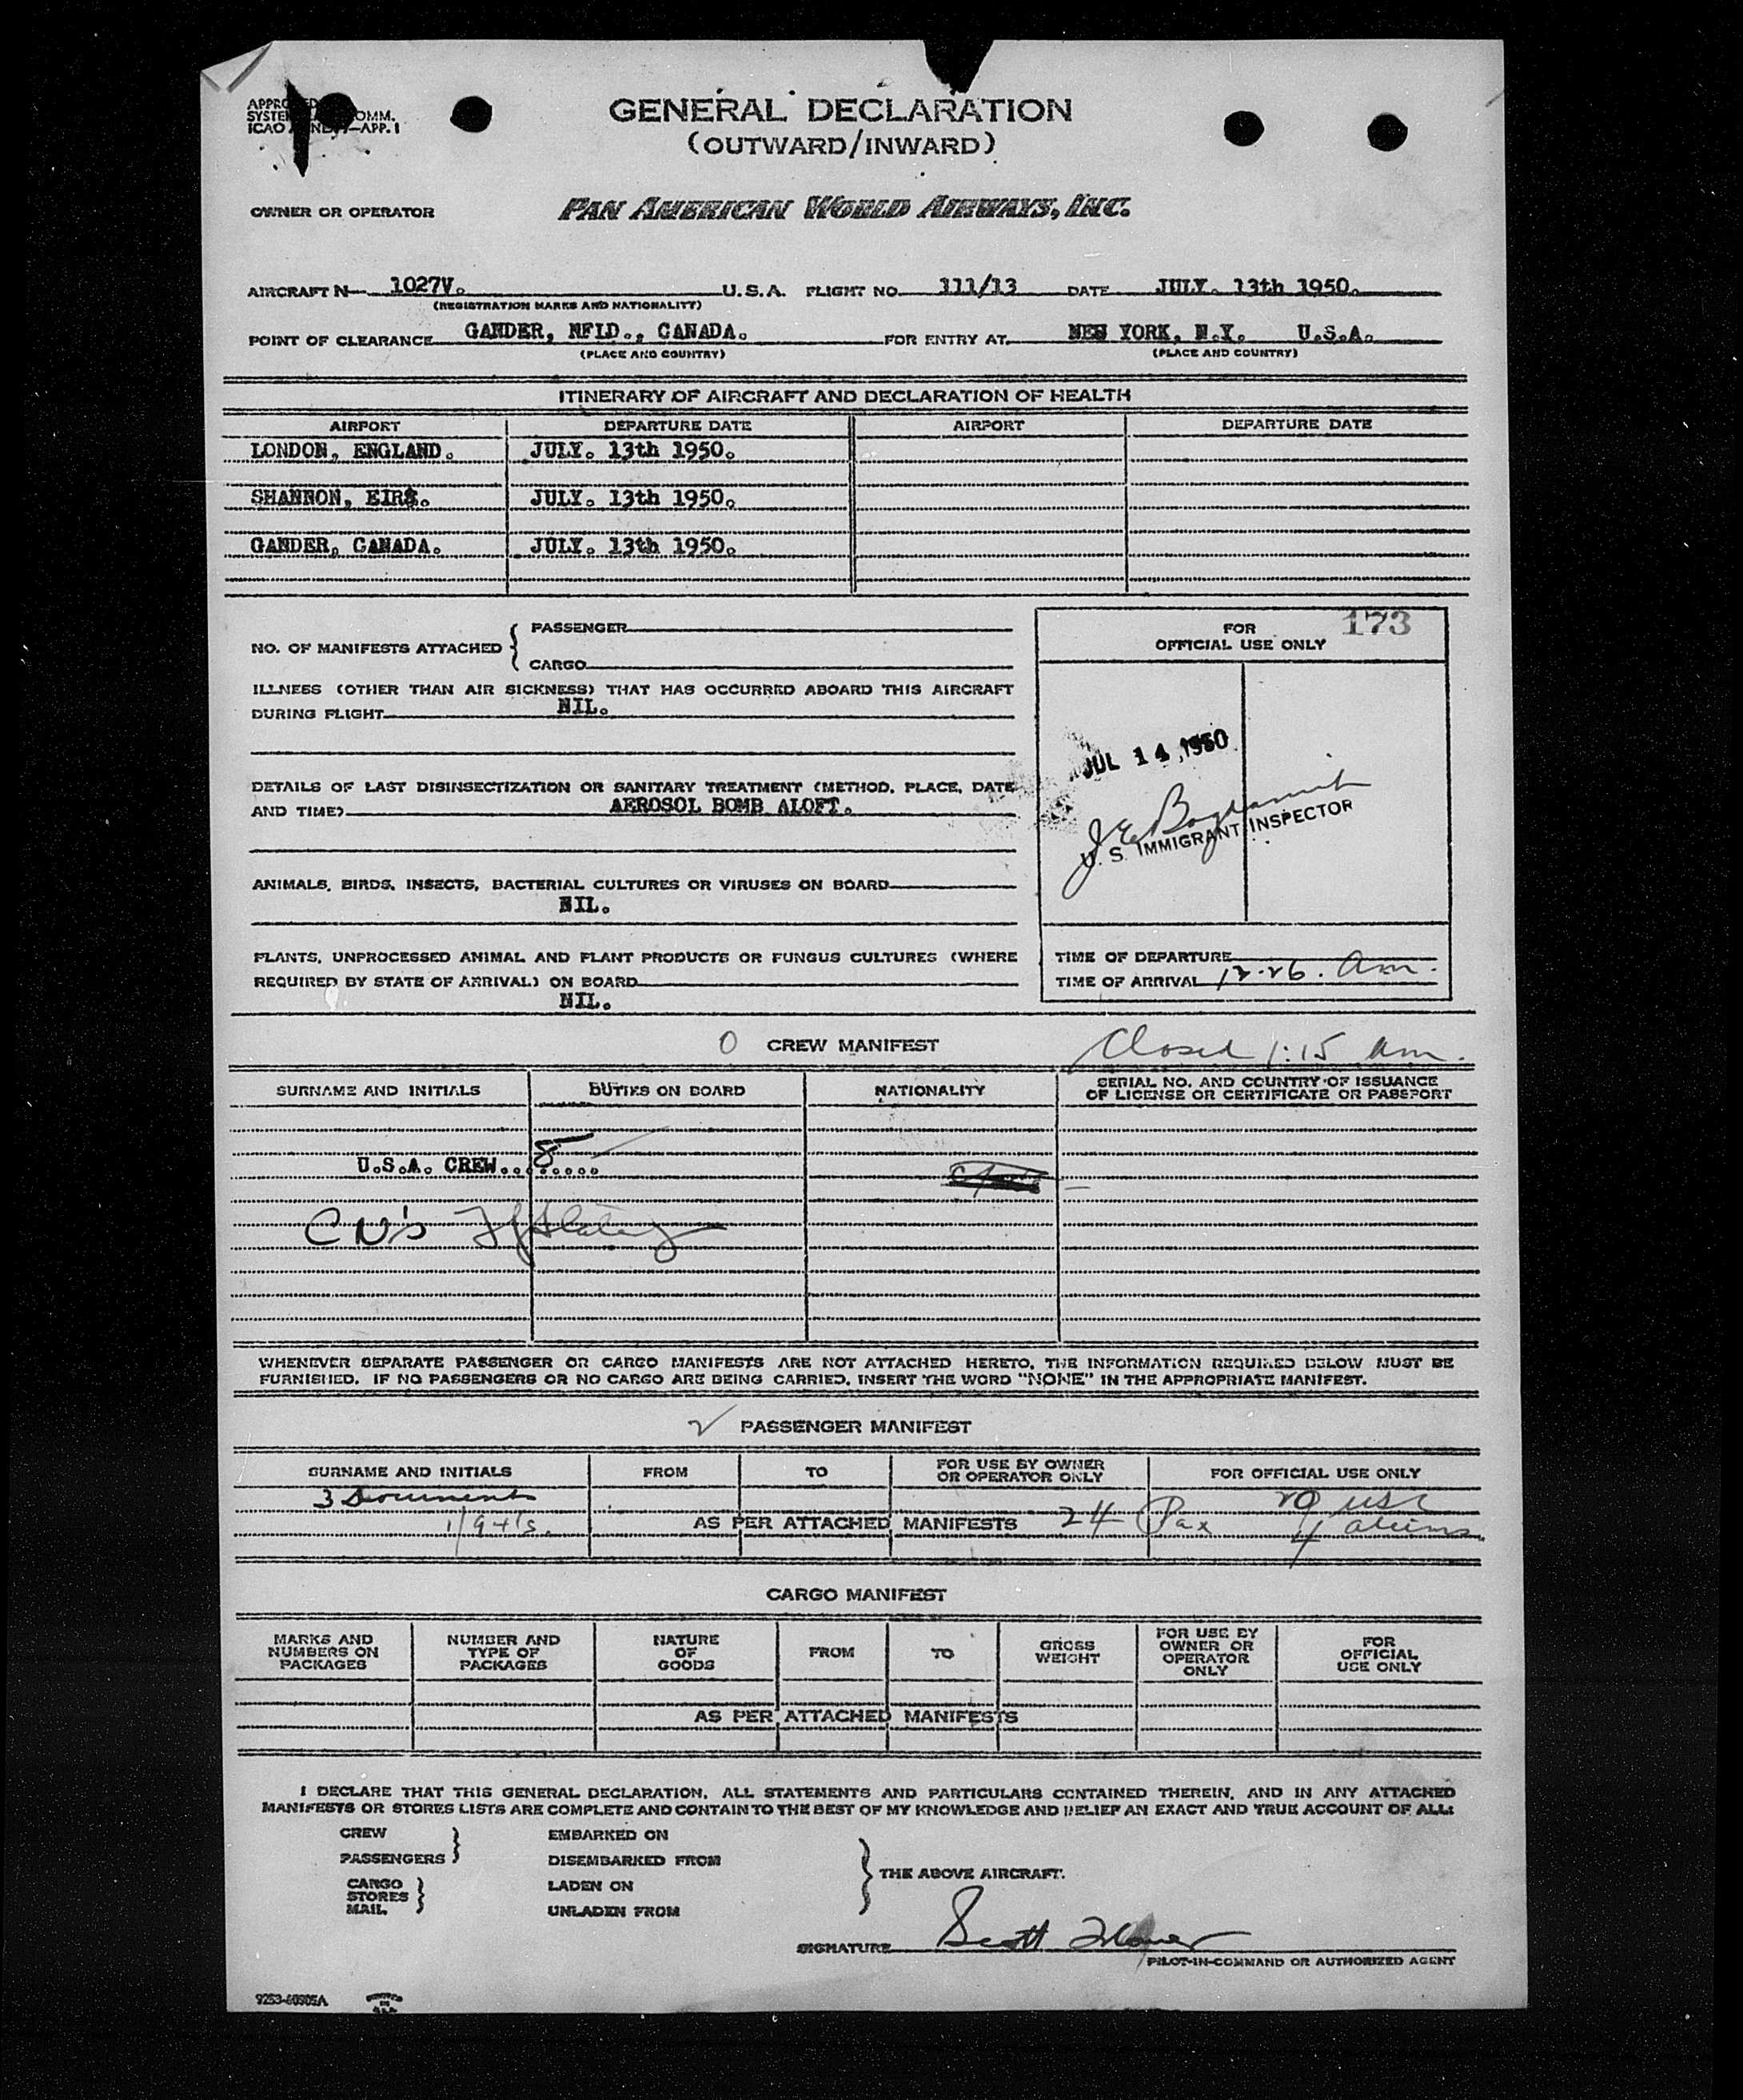 GENERAL DECLARATION
(OUTWARD/INWARD)
OWNER OR OPERATOR PAN AMERICAN WORLD AIRWAYS, INC.
AIRCRAFT N 1027V. U.S.A. FLIGHT NO. 111/13 DATE JULY. 13th 1950.
(REGISTRATION MARKS AND NATIONALITY)
POINT OF CLEARANCE GANDER, NFLD., CANADA. FOR ENTRY AT NEW YORK, N.Y. U.S.A.
(PLACE AND COUNTRY) (PLACE AND COUNTRY)
ITINERARY OF AIRCRAFT AND DECLARATION OF HEALTH
AIRPORT DEPARTURE DATE AIRPORT DEPARTURE DATE
LONDON, ENGLAND. JULY. 13th 1950.
SHANNON, EIRE. JULY. 13th 1950.
GANDER, CANADA. JULY. 13th 1950.
NO. OF MANIFESTS ATTACHED { PASSENGER
CARGO
ILLNESS (OTHER THAN AIR SICKNESS) THAT HAS OCCURRED ABOARD THIS AIRCRAFT
DURING FLIGHT NIL.
DETAILS OF LAST DISINSECTIZATION OR SANITARY TREATMENT (METHOD, PLACE, DATE
AND TIME) AEROSOL BOMB ALOFT.
ANIMALS, BIRDS, INSECTS, BACTERIAL CULTURES OR VIRUSES ON BOARD
NIL.
PLANTS, UNPROCESSED ANIMAL AND PLANT PRODUCTS OR FUNGUS CULTURES (WHERE
REQUIRED BY STATE OF ARRIVAL) ON BOARD
NIL.
FOR 173
OFFICIAL USE ONLY
JUL 14 1950
U. S. IMMIGRANT INSPECTOR
TIME OF DEPARTURE
TIME OF ARRIVAL 12-26. am.
0 CREW MANIFEST Closed 1:15 am.
SURNAME AND INITIALS DUTIES ON BOARD NATIONALITY SERIAL NO. AND COUNTRY OF ISSUANCE
OF LICENSE OR CERTIFICATE OR PASSPORT
U.S.A. CREW... 8 .....
CN's
WHENEVER SEPARATE PASSENGER OR CARGO MANIFESTS ARE NOT ATTACHED HERETO, THE INFORMATION REQUIRED BELOW MUST BE
FURNISHED. IF NO PASSENGERS OR NO CARGO ARE BEING CARRIED, INSERT THE WORD "NONE" IN THE APPROPRIATE MANIFEST.
PASSENGER MANIFEST
SURNAME AND INITIALS FROM TO FOR USE BY OWNER
OR OPERATOR ONLY FOR OFFICIAL USE ONLY
3 Documents 20 USC
AS PER ATTACHED MANIFESTS 24 Pax 4 aliens
CARGO MANIFEST
MARKS AND
NUMBERS ON
PACKAGES
NUMBER AND
TYPE OF
PACKAGES
NATURE
OF
GOODS
FROM
TO
GROSS
WEIGHT
FOR USE BY
OWNER OR
OPERATOR
ONLY
FOR
OFFICIAL
USE ONLY
AS PER ATTACHED MANIFESTS
I DECLARE THAT THIS GENERAL DECLARATION, ALL STATEMENTS AND PARTICULARS CONTAINED THEREIN, AND IN ANY ATTACHED
MANIFESTS OR STORES LISTS ARE COMPLETE AND CONTAIN TO THE BEST OF MY KNOWLEDGE AND BELIEF AN EXACT AND TRUE ACCOUNT OF ALL:
CREW } EMBARKED ON
PASSENGERS DISEMBARKED FROM
CARGO LADEN ON
STORES } THE ABOVE AIRCRAFT.
MAIL UNLADEN FROM
SIGNATURE Scott
PILOT-IN-COMMAND OR AUTHORIZED AGENT
9253-60905A